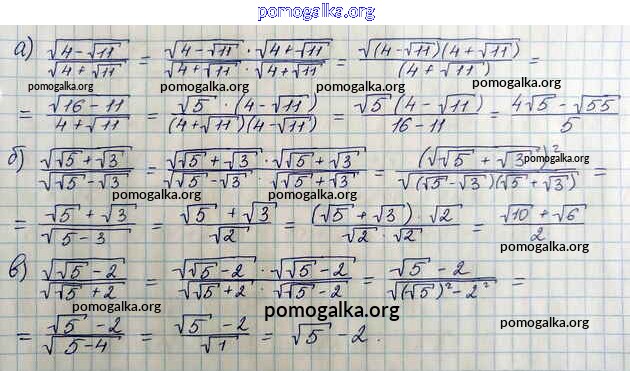 pomogalka.org
а) √(4-√11) / √(4+√11) = (√(4-√11) · √(4+√11)) / (√(4+√11) · √(4+√11)) = √((4-√11)(4+√11)) / (4+√11) =
pomogalka.org pomogalka.org pomogalka.org
= √(16-11) / (4+√11) = (√5 · (4-√11)) / ((4+√11)(4-√11)) = (√5 (4-√11)) / (16-11) = (4√5 - √55) / 5
pomogalka.org
б) √(√5+√3) / √(√5-√3) = (√(√5+√3) · √(√5+√3)) / (√(√5-√3) · √(√5+√3)) = (√(√5+√3))² / √((√5-√3)(√5+√3)) =
pomogalka.org pomogalka.org pomogalka.org
= (√5+√3) / √(5-3) = (√5+√3) / √2 = ((√5+√3) · √2) / (√2 · √2) = (√10+√6) / 2
pomogalka.org
в) √(√5-2) / √(√5+2) = (√(√5-2) · √(√5-2)) / (√(√5+2) · √(√5-2)) = (√5-2) / √((√5)²-2²) =
pomogalka.org pomogalka.org
= (√5-2) / √(5-4) = (√5-2) / √1 = √5-2.
pomogalka.org